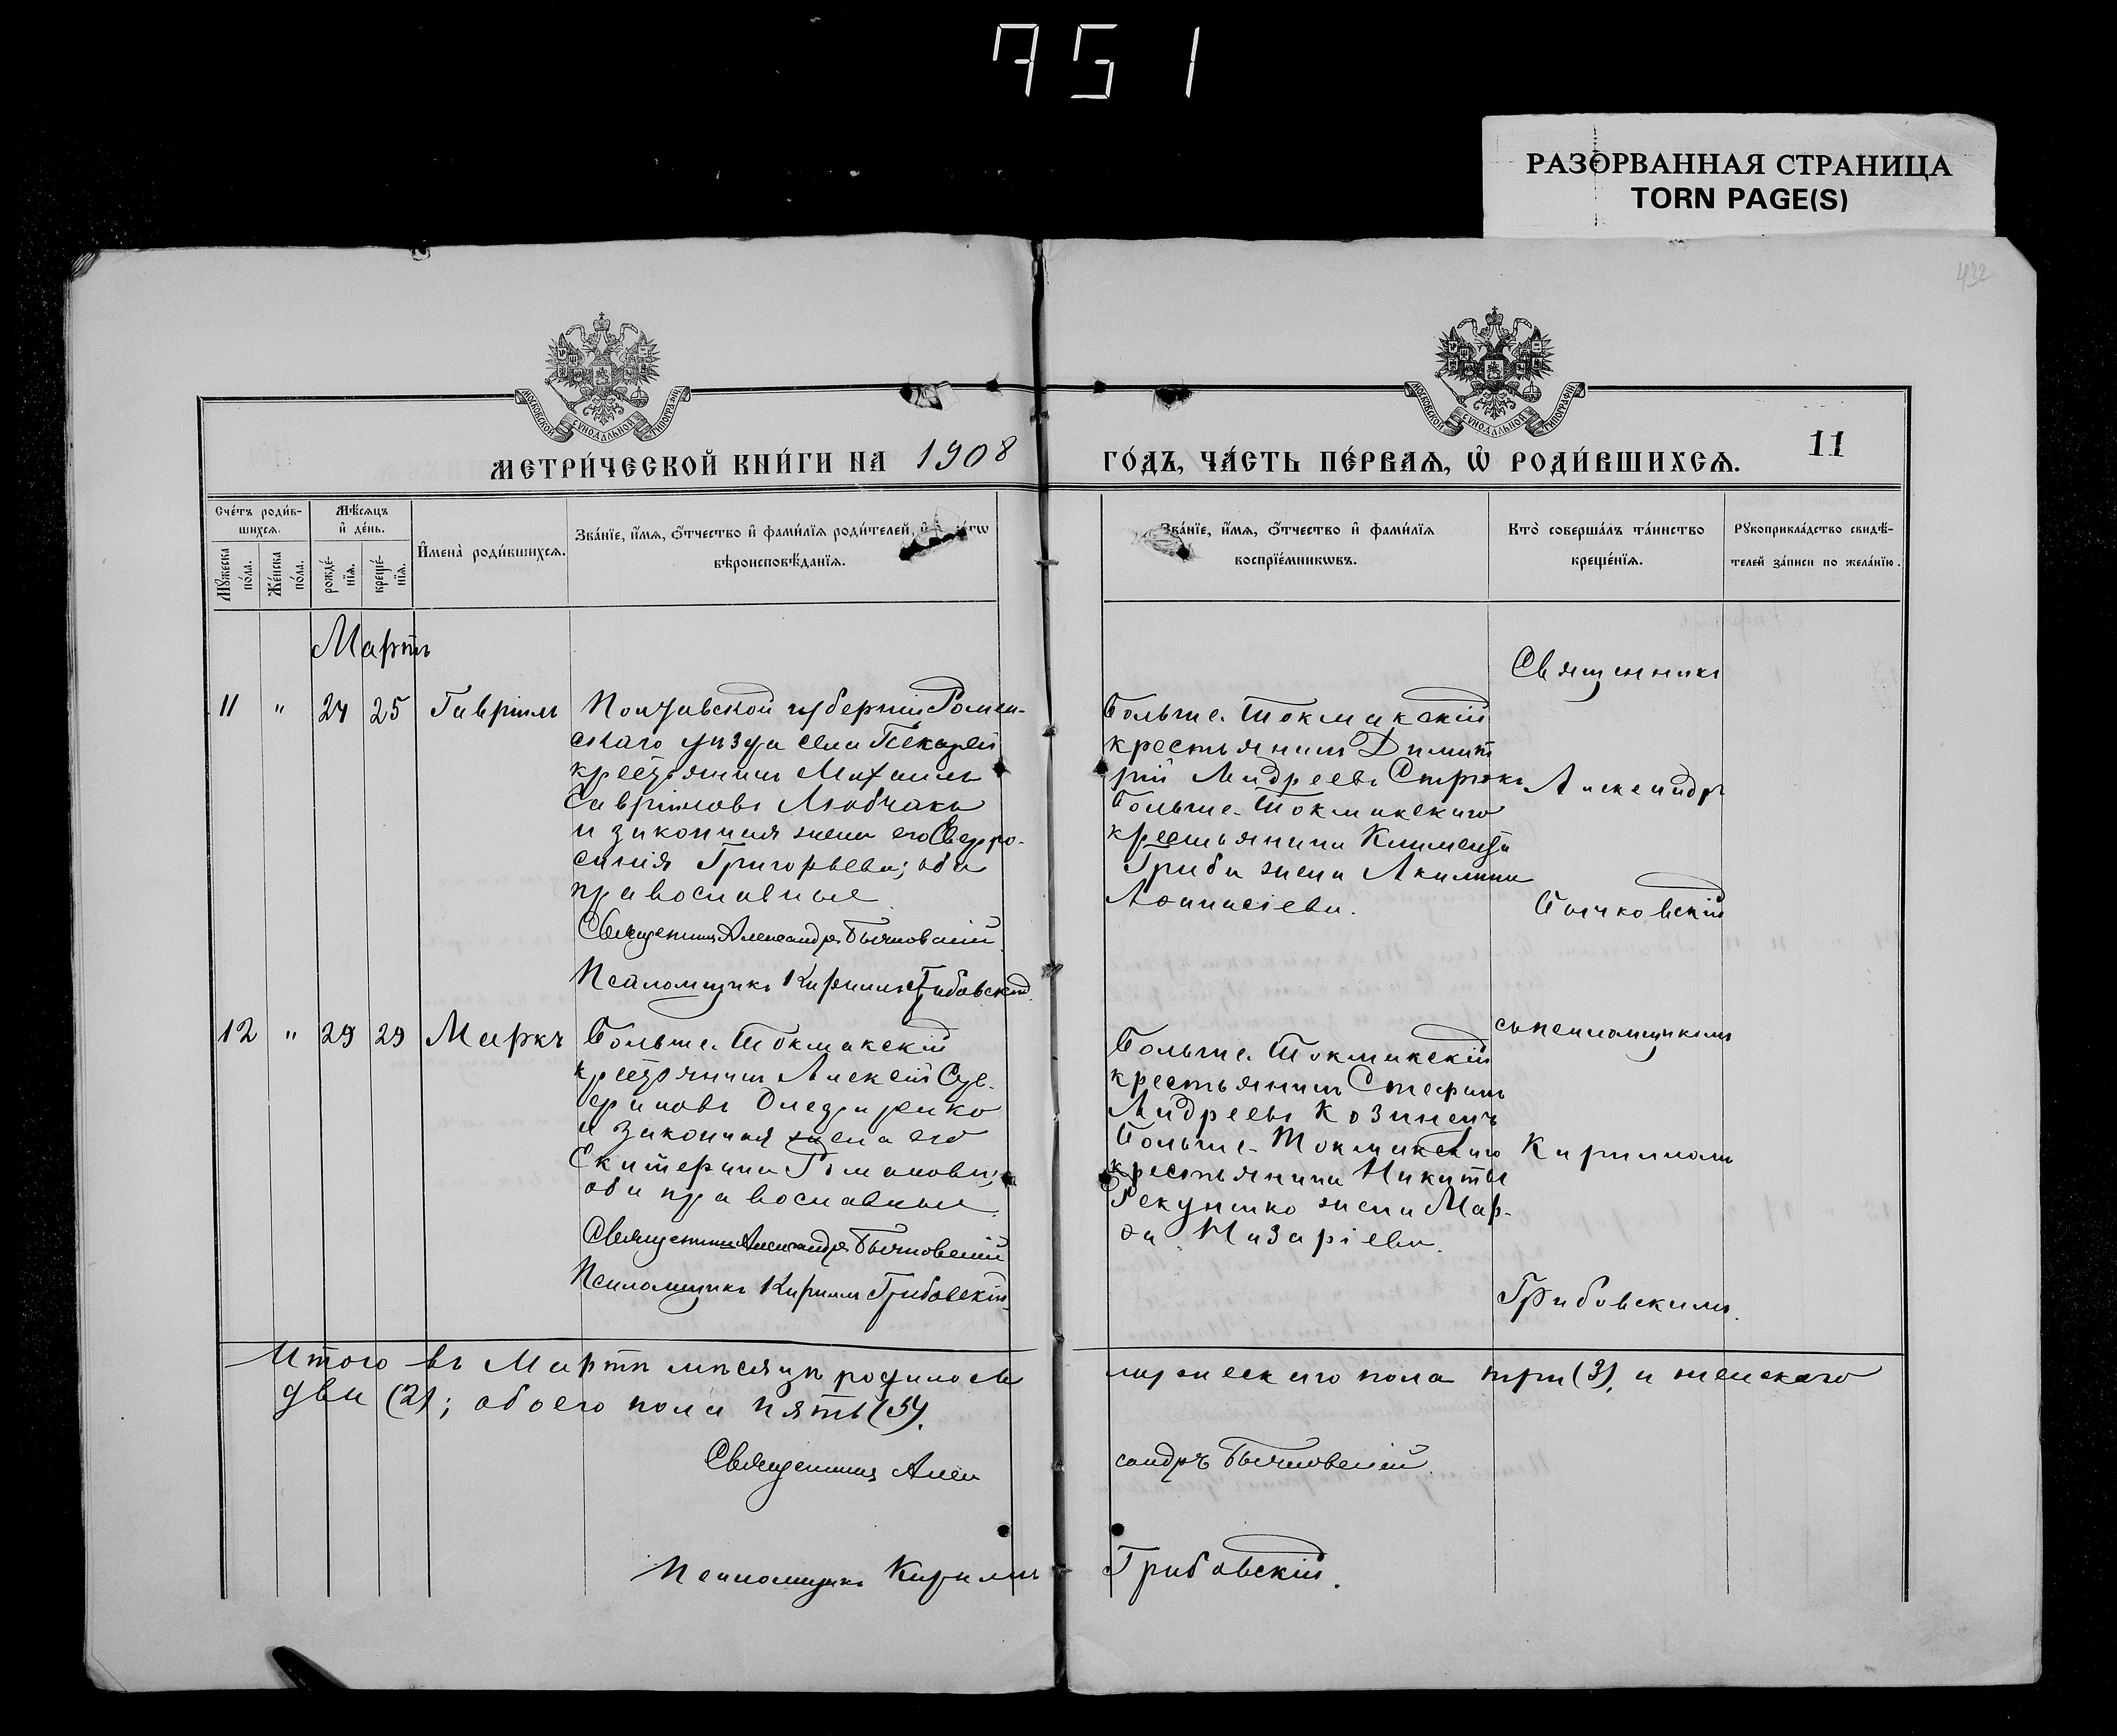 751
РАЗОРВАННАЯ СТРАНИЦА
TORN PAGE(S)
432
МОСКОВСКОЙ СѴНОДАЛЬНОЙ ТИПОГРАФІИ
МОСКОВСКОЙ СѴНОДАЛЬНОЙ ТИПОГРАФІИ
МЕТРИ́ЧЕСКОЙ КНИ́ГИ НА 1908
ГО́ДЪ, ЧА́СТЬ ПЕ́РВАѦ, Ѡ҆ РОДИ́ВШИХСѦ.
11
Сче́тъ роди́в-
шихсѧ.
Мꙋ́жеска
по́ла.
Же́нска
по́ла.
Мѣ́сѧцъ
и҆ де́нь.
рожде́-
нїѧ.
креще́-
нїѧ.
И҆мена̀ роди́вшихсѧ.
Зва́нїе, и҆́мѧ, ѻ҆́тчество и҆ фами́лїѧ роди́телей, и҆
вѣроисповѣ́данїѧ.
Зва́нїе, и҆́мѧ, ѻ҆́тчество и҆ фами́лїѧ
воспрїе́мникѡвъ.
Кто̀ соверша́лъ та́инство
креще́нїѧ.
Рꙋкоприкла́дство свидѣ́-
телей за́писи по жела́нїю.
Мартъ
11 " 24 25 Гавріилъ
Полтавской губерніи Ромен-
скаго уѣзда села Пекарей
крестьянинъ Михаилъ
Гавріиловъ Любчакъ
и законная жена его Евфро-
синія Григорьева; оба
православные
Священникъ Александръ Бычковскій
Псаломщикъ Кириллъ Грибовскій
Больше-Токмакскій
крестьянинъ Димит
рій Андреевъ Стрюкъ
Больше-Токмакскаго
крестьянина Климента
Гриба жена Акилина
Аѳанасіева.
Священникъ
Александръ
Бычковскій
съ псаломщикомъ
Кирилломъ
Грибовскимъ.
12 " 29 29 Маркъ
Больше-Токмакскій
крестьянинъ Алексій Севе-
ериновъ
и законная жена его
Екатерина Романова;
оба православные.
Священникъ Александръ Бычковскій
Псаломщикъ Кириллъ Грибовскій.
Больше-Токмакскій
крестьянинъ Стефанъ
Андреевъ Козинецъ
Больше-Токмакскаго
крестьянина Никиты
Рекуненко жена Мар-
ѳа Назаріева.
Итого въ Мартѣ мѣсяцѣ родилось
мужескаго пола три (3), и женскаго
два (2); обоего пола пять (5).
Священникъ Алек
сандръ Бычковскій.
Псаломщикъ Кириллъ
Грибовскій.